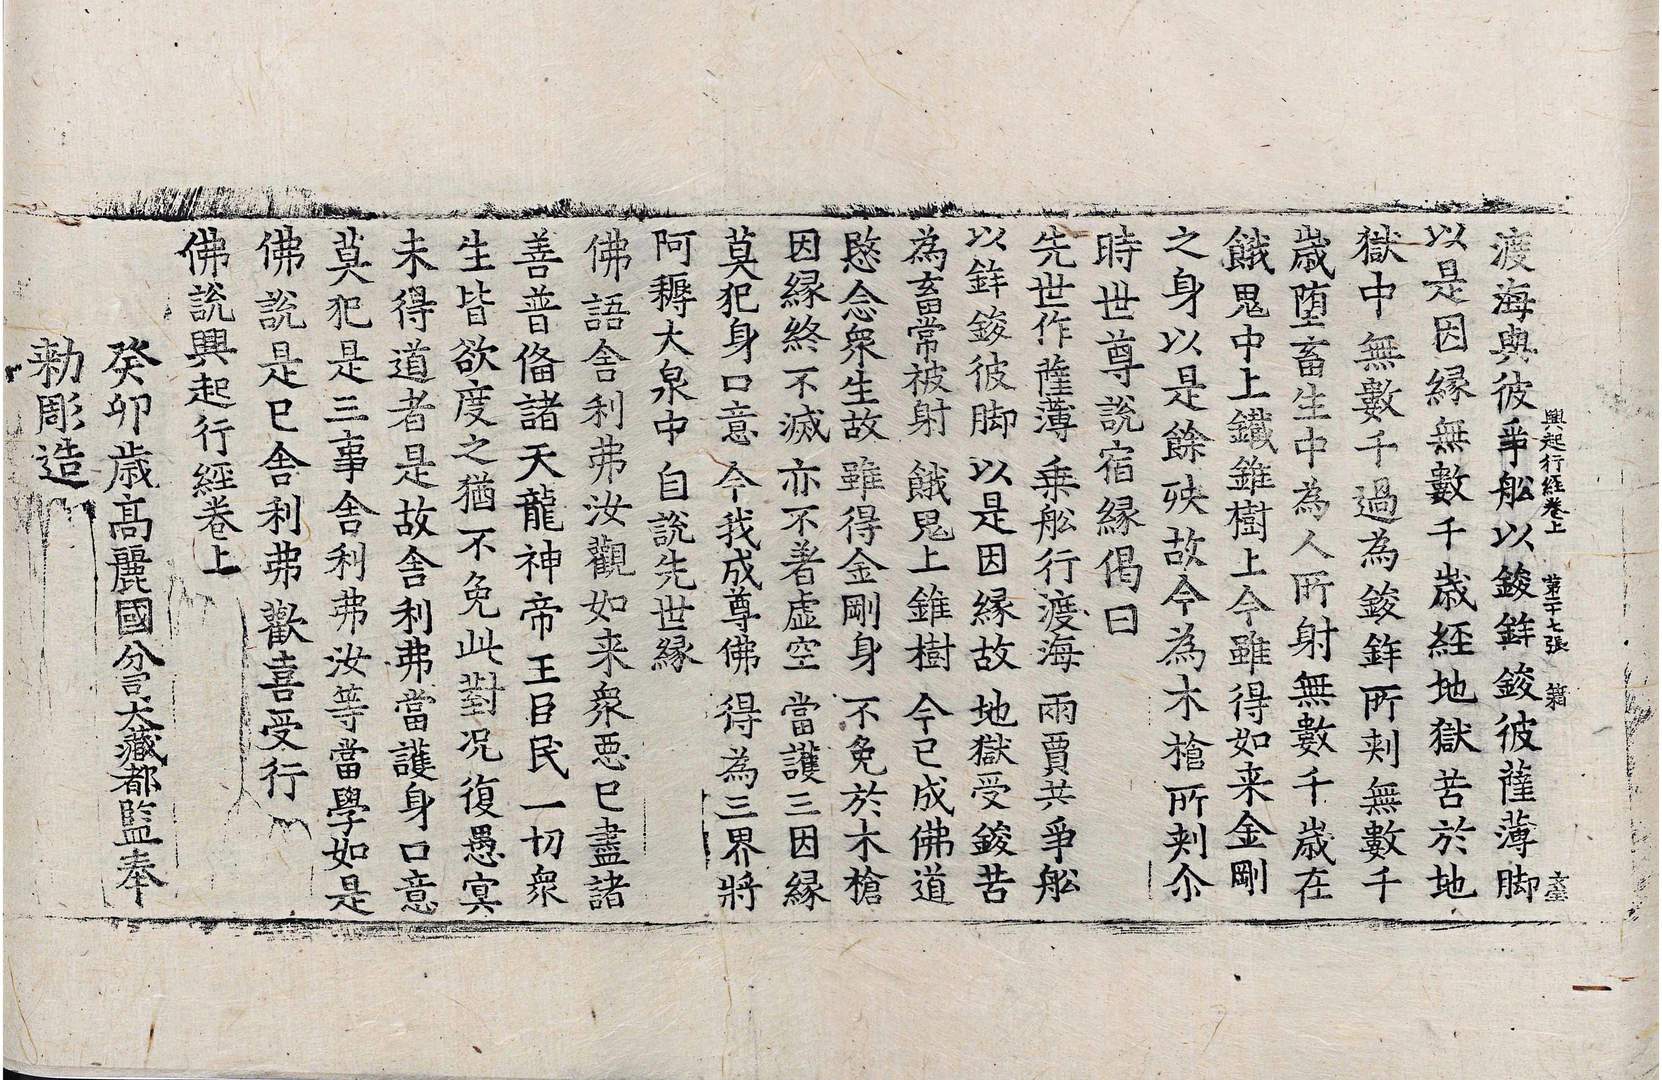 興起行經卷上 第二十七張 籍
渡海與彼爭舩以鋑鉾鋑彼薩薄脚
以是因縁無數千歲經地獄苦於地
獄中無數千過為鋑鉾所刾無數千
歲堕畜生中為人所射無數千歲在
餓鬼中上鐵錐樹上今雖得如来金剛
之身以是餘殃故今為木槍所刾尒
時世尊說宿縁偈曰
先世作薩薄 乗舩行渡海 兩賈共爭舩
以鉾鋑彼脚 以是因縁故 地獄受鋑苦
為畜常被射 餓鬼上錐樹 今已成佛道
愍念衆生故 雖得金剛身 不免於木槍
因縁終不滅 亦不著虛空 當護三因縁
莫犯身口意 今我成尊佛 得為三界將
阿耨大泉中 自說先世縁
佛語舍利弗汝觀如来衆惡已盡諸
善普俻諸天龍神帝王臣民一切衆
生皆欲度之猶不免此對况復愚㝠
未得道者是故舍利弗當護身口意
莫犯是三事舍利弗汝等當學如是
佛說是已舍利弗歡喜受行
佛說興起行經卷上
癸卯歲高麗國分司大藏都監奉
勑彫造